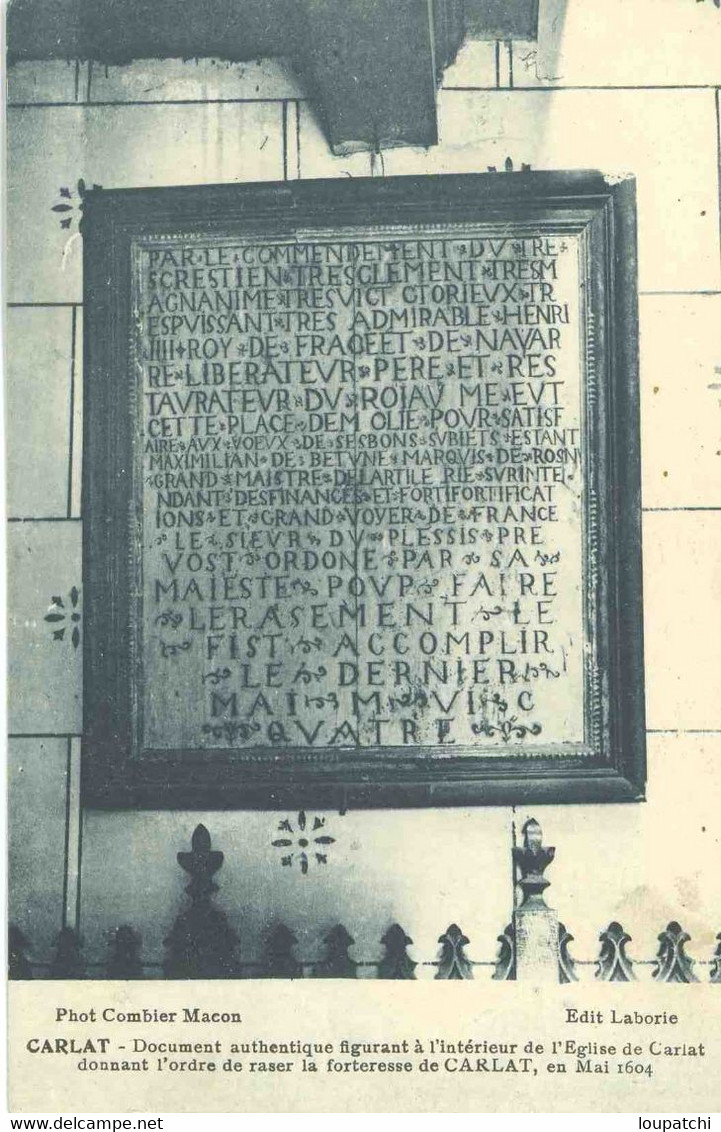 PAR LE COMMENDEMENT DV TRE
SCRESTIEN TRESCLEMENT TRESM
AGNANIME TRESVICT CTORIEVX TR
ESPVISSANT TRES ADMIRABLE HENRI
IIII ROY DE FRACEET DE NAVAR
RE LIBERATEVR PERE ET RES
TAVRATEVR DV ROIAV ME EVT
CETTE PLACE DEM OLIE POVR SATISF
AIRE AVX VOEVX DE SESBONS SVBIETS ESTANT
MAXIMILIAN DE BETVNE MARQVIS DE ROSN
GRAND MAISTRE DELARTILE RIE SVRINTEI
NDANT DESFINANCES ET FORTIFORTIFICAT
IONS ET GRAND VOYER DE FRANCE
LE SIEVR DV PLESSIS PRE
VOST ORDONE PAR SA
MAIESTE POVP FAIRE
LERASEMENT LE
FIST ACCOMPLIR
LE DERNIER
MAI M VI C
QVATRE
Phot Combier Macon
Edit Laborie
CARLAT - Document authentique figurant à l'intérieur de l'Eglise de Carlat
donnant l'ordre de raser la forteresse de CARLAT, en Mai 1604
loupatchi
delcampe.net